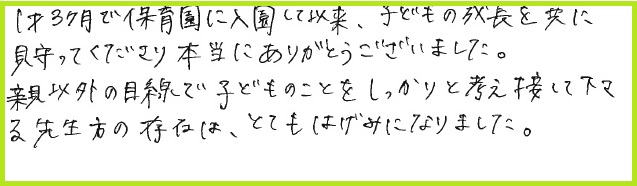 1才3ケ月で保育園に入園して以来、子どもの成長を共に
見守ってくださり本当にありがとうございました。
親以外の目線で子どものことをしっかりと考え接して下さ
る先生方の存在は、とてもはげみになりました。